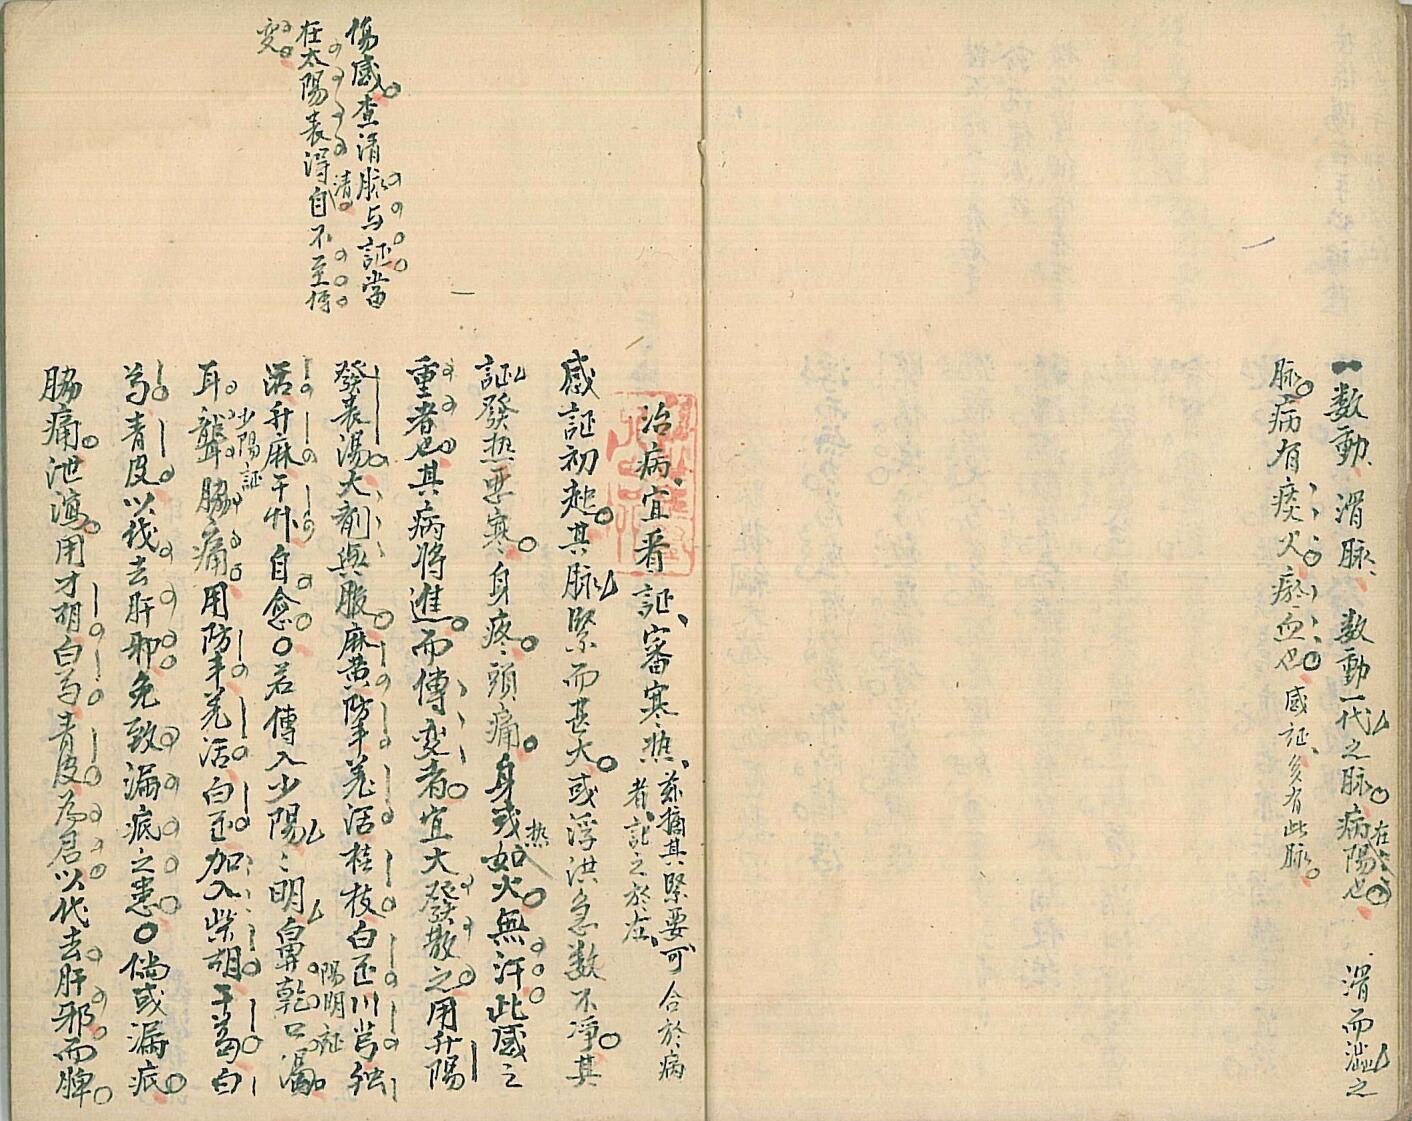 一数動、滑脉、数動一代之脉。病在陽也。滑而澁之
脉。病有痰火瘀血也。感証、多有此脉。
治病、宜看証、審寒热、茲摘其緊要、可合於病
者、記之於左、
感証初起。其脉緊而甚大。或浮洪急数不凈。其
証發热悪寒。身疼。頭痛。身或热如火。無汗此感之
重者也。其病将進。而傳変者。宜大發散之。用升陽
發表湯大劑與服。麻黄防羊羌活桂枝白芷川芎
活升麻干草自愈。若傳入少陽陽明鼻乾口渴陽明証
耳聾脇痛少陽証用防羊羌活白芷加入柴胡干葛白
芍青皮以伐去肝邪免致漏底之患。倘或漏底。
脇痛。泄瀉。用才胡白芍青皮為君。以代去肝邪。而脾。
傷感。查清脉与証當
在太陽表得清自不至傳
変。